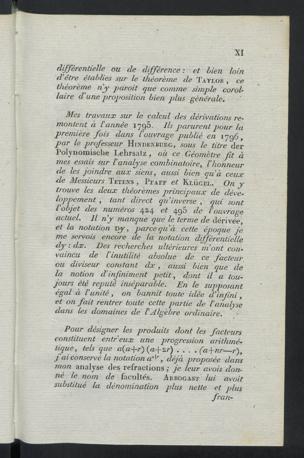 XI
différentielle ou de différence: et bien loin
d'être établies sur le théorème de TAYLOR, ce
théorème n'y paroit que comme simple corol-
laire d'une proposition bien plus générale.
Mes travaux sur le calcul des dérivations re-
montent à l'année 1795. Ils parurent pour la
première fois dans l'ouvrage publié en 1796,
par le professeur HINDENBURG, sous le titre der
Polynomische Lehrsatz, où ce Géomètre fit à
mes essais sur l'analyse combinatoire, l'honneur
de les joindre aux siens, aussi bien qu'à ceux
de Messieurs TETENS, PFAFF et KLÜGEL. On y
trouve les deux théorèmes principaux de déve-
loppement, tant direct qu'inverse, qui sont
l'objet des numéros 424 et 495 de l'ouvrage
actuel. Il n'y manque que le terme de dérivée,
et la notation Dy, parce qu'à cette époque je
me servois encore de la notation différentielle
dy : dx. Des recherches ultérieures m'ont con-
vaincu de l'inutilité absolue de ce facteur
ou diviseur constant dx, aussi bien que de
la notion d'infiniment petit, dont il a tou-
jours été reputé inséparable. En le supposant
égal à l'unité, on bannit toute idée d'infini,
et on fait rentrer toute cette partie de l'analyse
dans les domaines de l'Algèbre ordinaire.
Pour désigner les produits dont les facteurs
constituent entr'eux une progression arithmé-
tique, tels que a(a+r)(a+2r) .... (a+nr−r),
j'ai conservé la notation aⁿʳ, déjà proposée dans
mon analyse des refractions; je leur avois don-
né le nom de facultés. ARBOGAST lui avoit
substitué la dénomination plus nette et plus
fran-